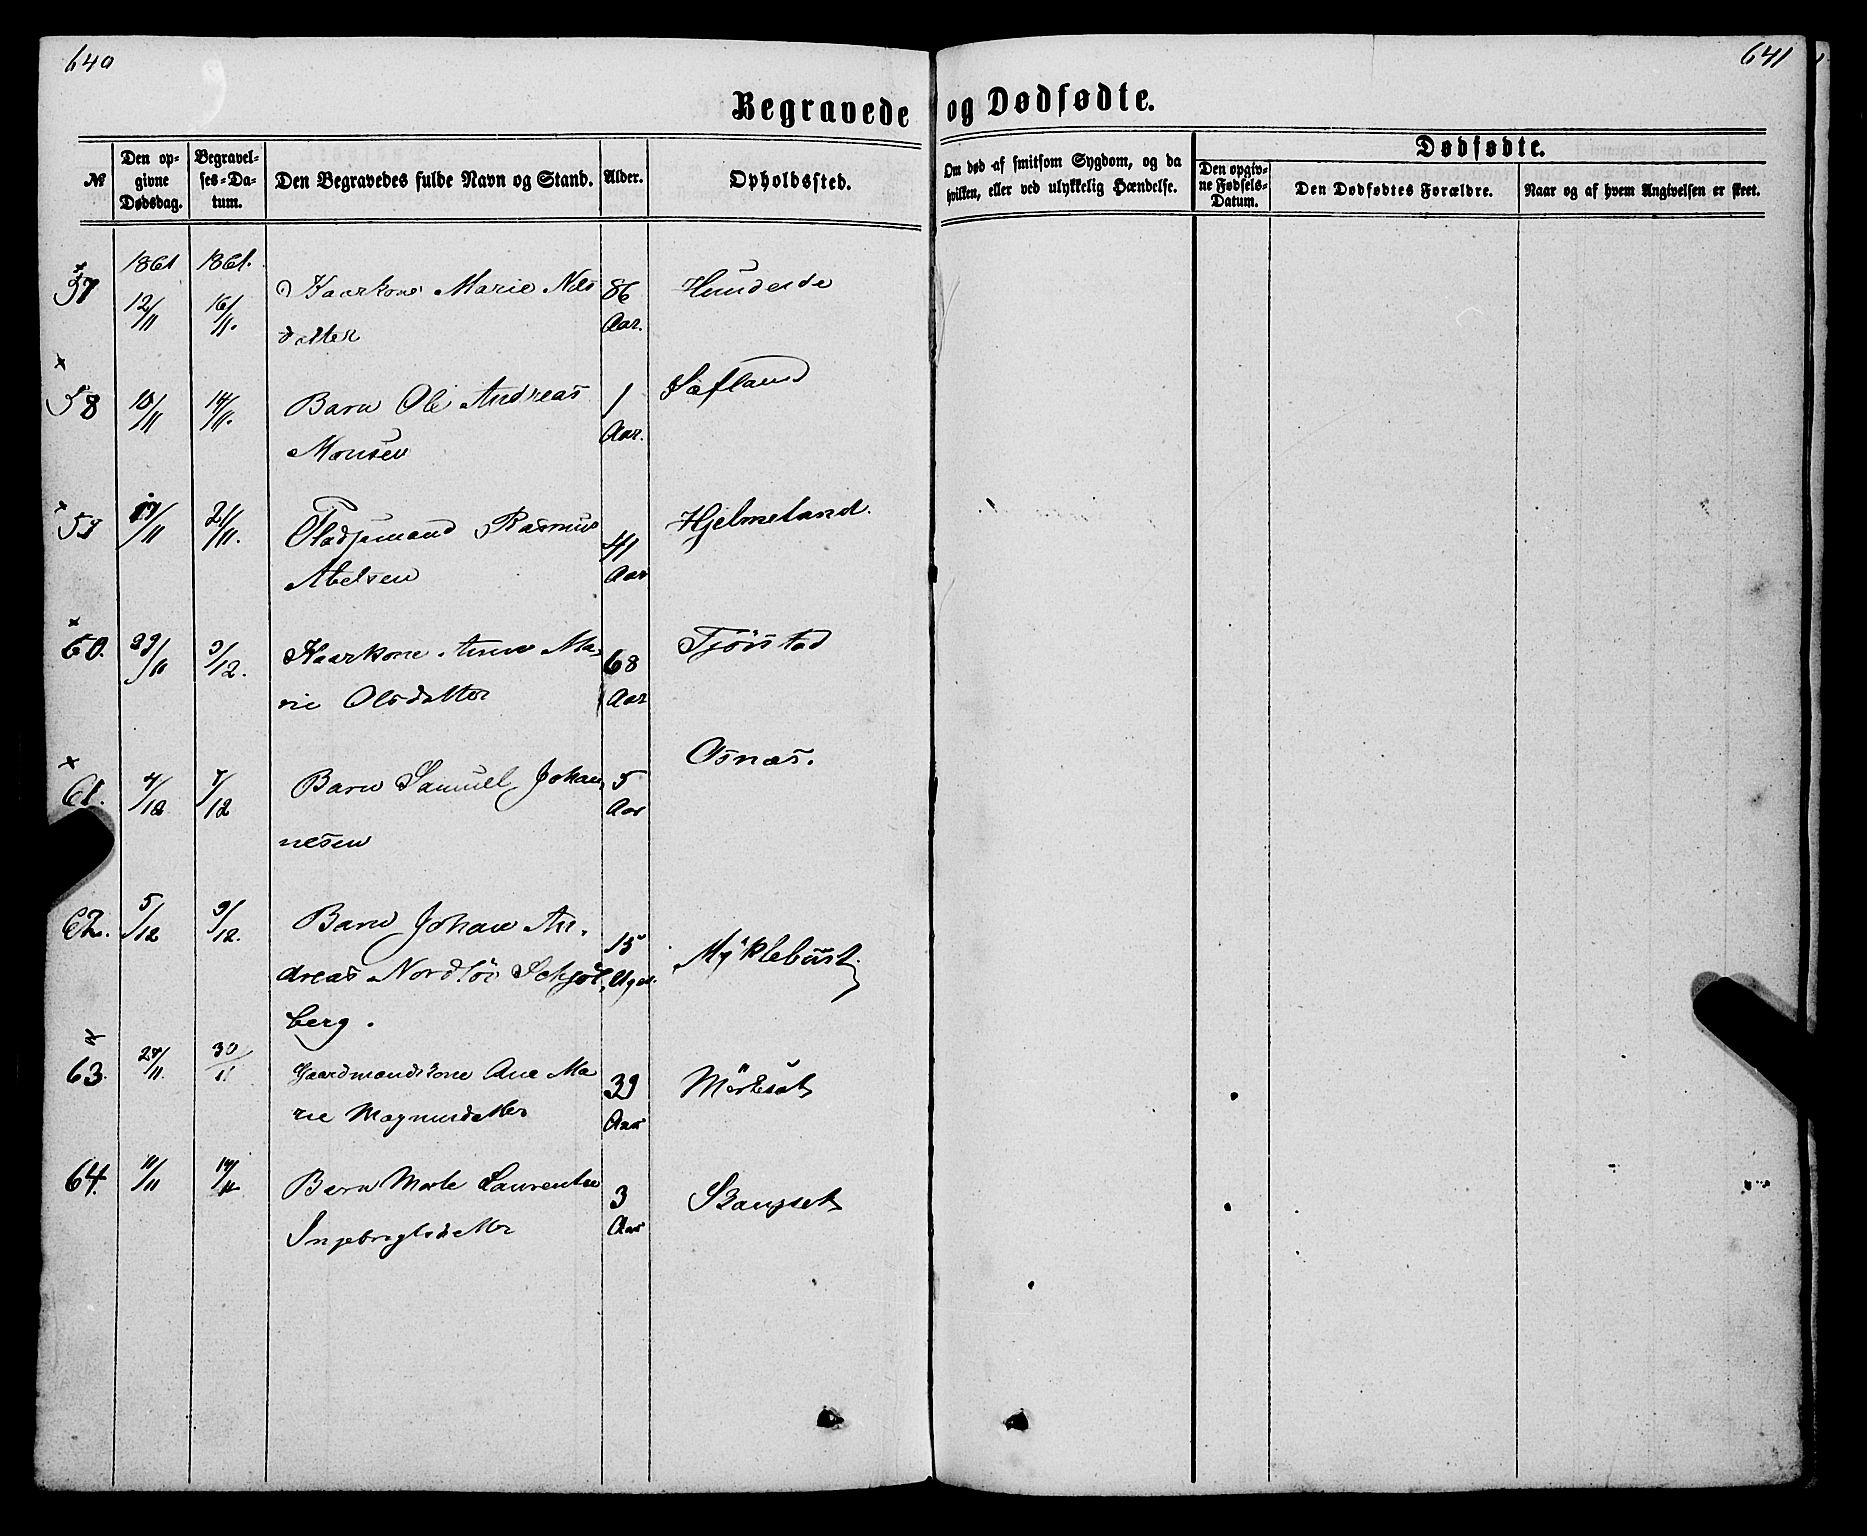 640
641
Begravede og Dødfødte.
№
Den opgivne Dødsdag.
Begravelses-Datum.
Den Begravedes fulde Navn og Stand.
Alder.
Opholdssted.
Om død af smitsom Sygdom, og da hvilken, eller ved ulykkelig Hændelse.
Dødfødte.
Den opgivne Fødsels-Datum.
Den Dødfødtes Forældre.
Naar og af hvem Angivelsen er skeet.
57 1861 12/11 1861. 16/11. Kaarkone Marie Nils
datter 86 Aar. Hundeide
58 10/11 14/11. Barn Ole Andreas
Monsen 1 Aar. Sæfland
59 17/11 21/11. Pladsemand Rasmus
Abelsen 41 Aar Hjelmeland.
60. 29/11 3/12. Kaarkone Anne Ma-
rie Olsdatter 68 Aar Tjörstad
61. 4/12 7/12 Barn Samuel Johan-
nesen 5 Aar Osnæs.
62. 5/12 9/12. Barn Johan An-
dreas Nordlöi Schjöl-
berg. 15 Uger. Myklebust
63. 24/11. 30/11 Gaardmandskone Ane Ma
rie Magnusdatter 39 Aar Mörkesæt
64. 11/11 14/11 Barn Laurentse
Ingebrigtsdatter 3 Aar